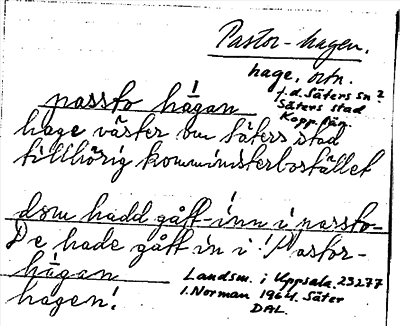 Pastor-hagen.
hage, ortn.
f.d. Säters sn?
Säters stad
Kopp. län.
passto hágan
hage väster om Säters stad
tillhörig komministerbostället
dom hadd gått-inn i passto-
De hade gått in i "Pastor-
hágan
hagen!
Landsm. i Uppsala. 23277
I. Norman 1964. Säter
DAL.